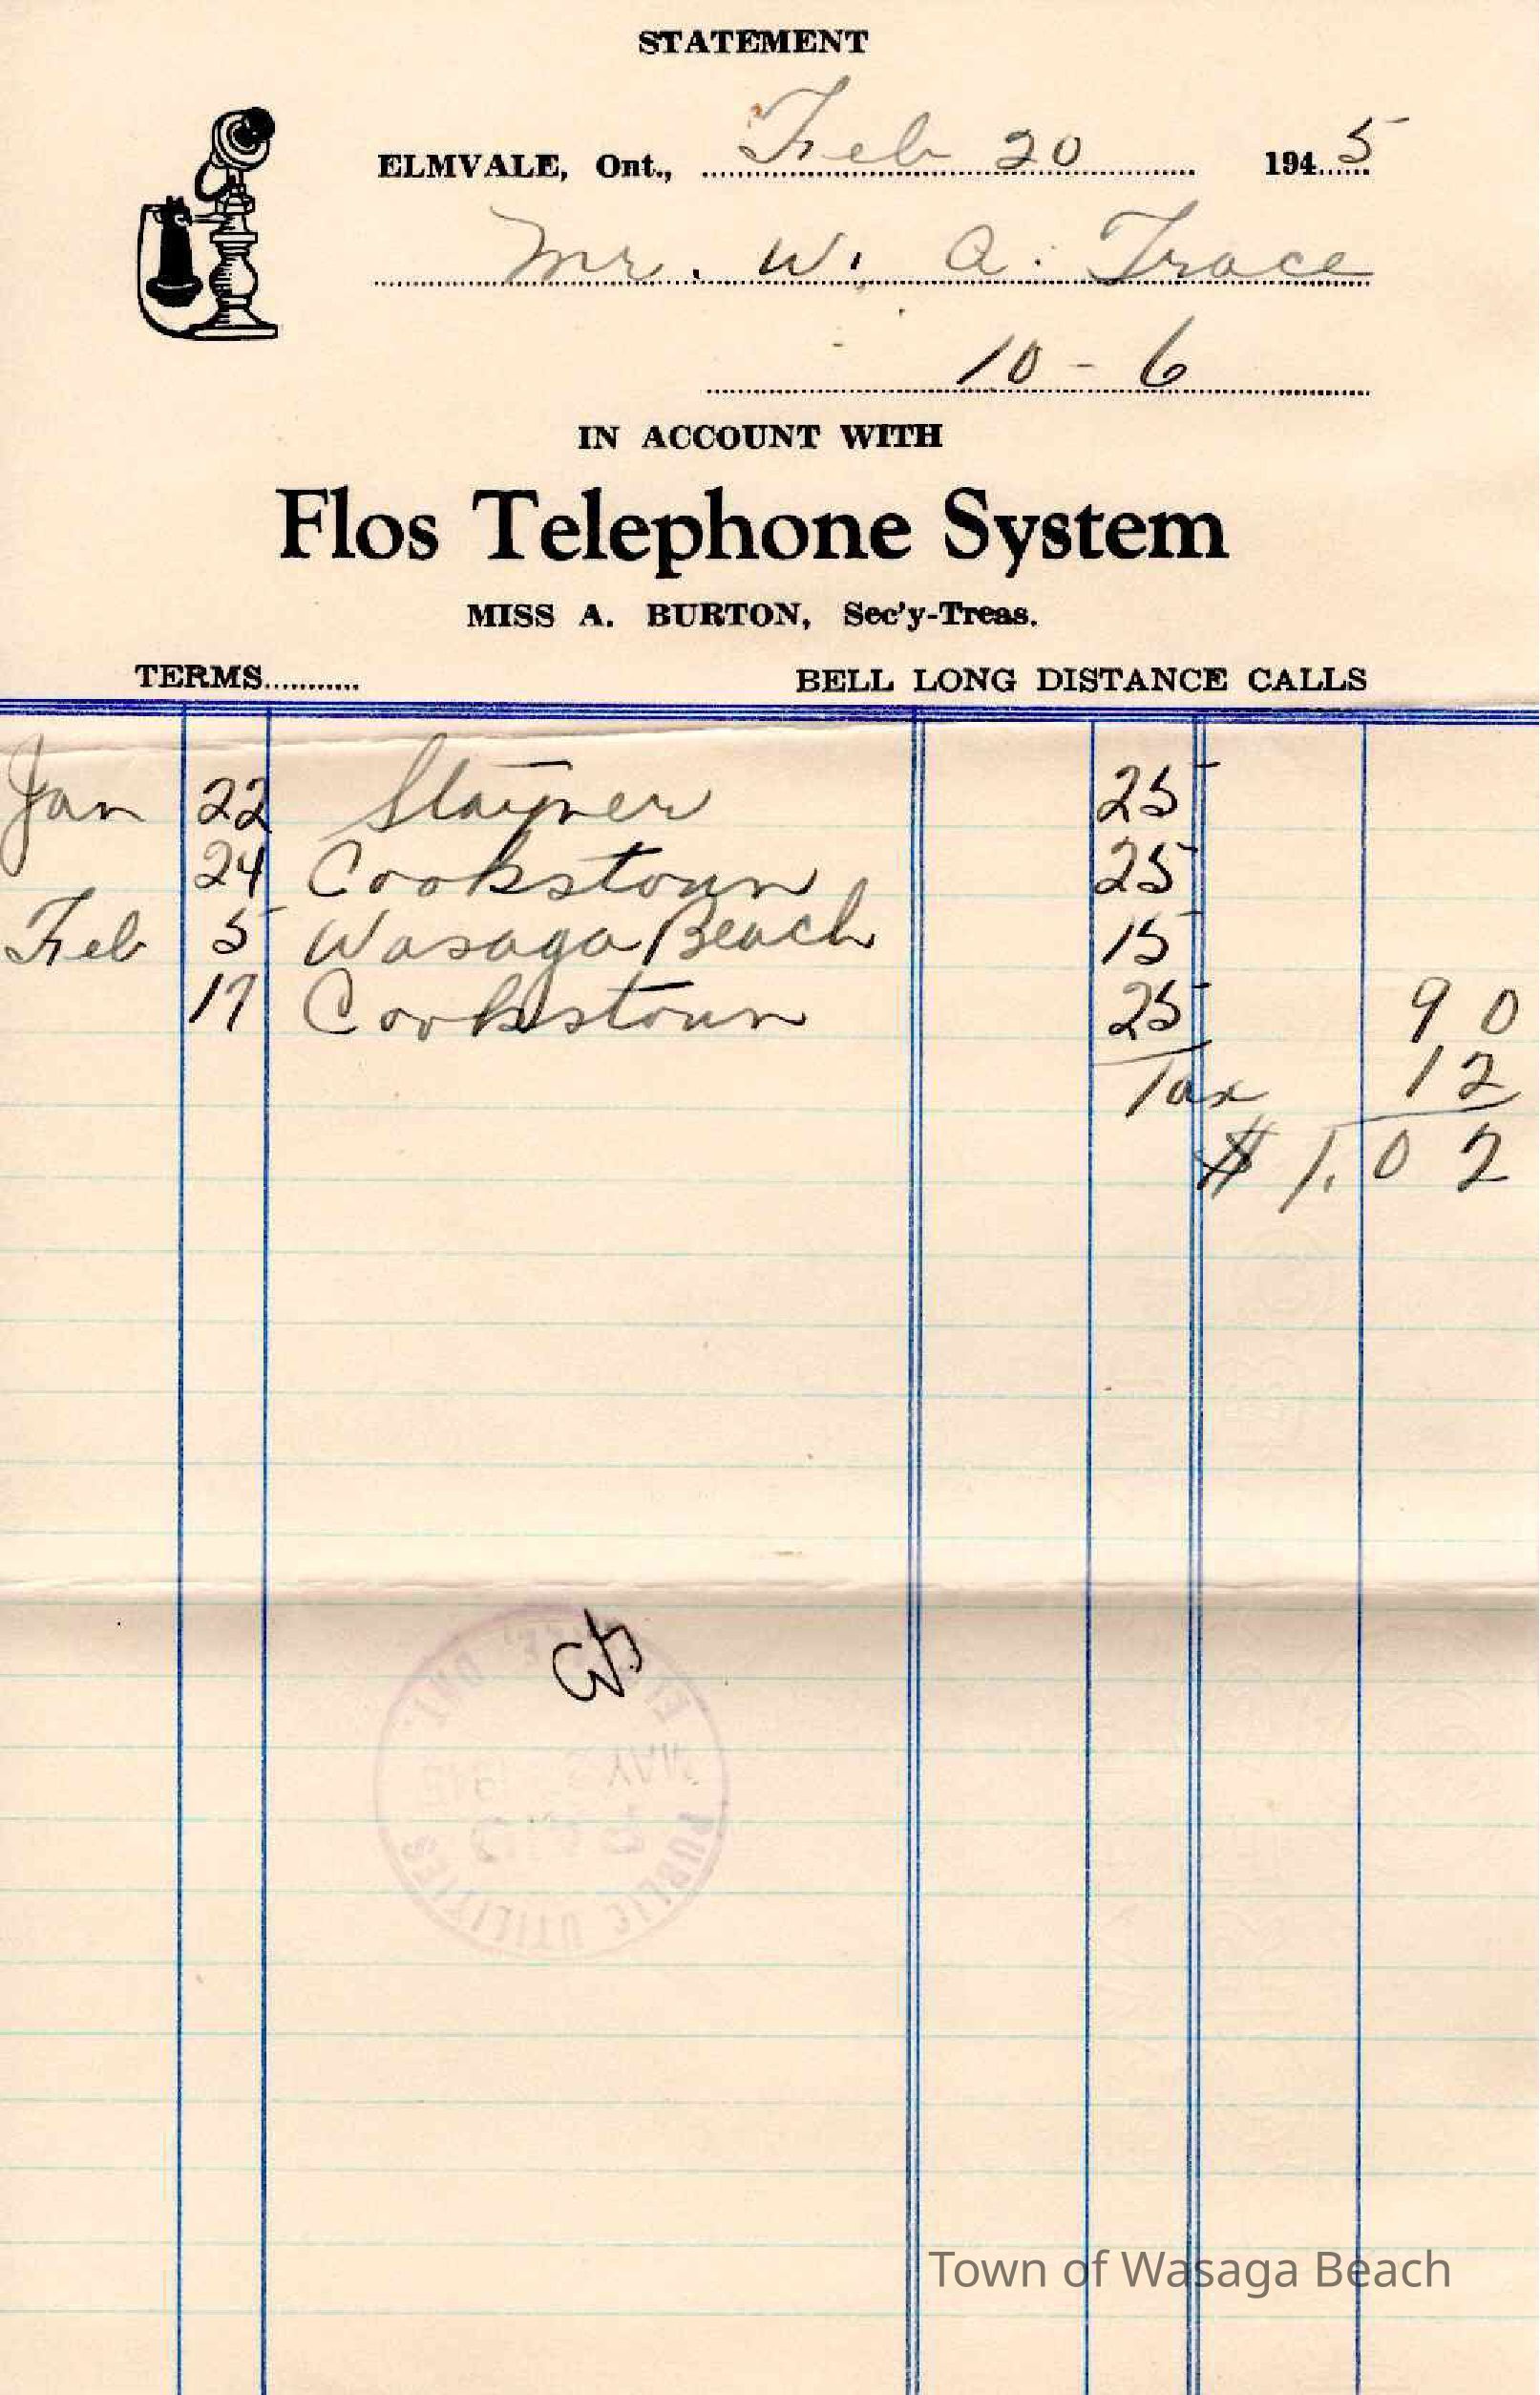 STATEMENT
ELMVALE, Ont., Feb 20 1945
Mr. W. A. Trace
10 - 6
IN ACCOUNT WITH
Flos Telephone System
MISS A. BURTON, Sec'y-Treas.
TERMS........... BELL LONG DISTANCE CALLS
Jan 22 Stayner 25
24 Cookstown 25
Feb 5 Wasaga Beach 15
17 Cookstown 25 90
Tax 12
$ 1.02
PUBLIC UTILITIES
Town of Wasaga Beach